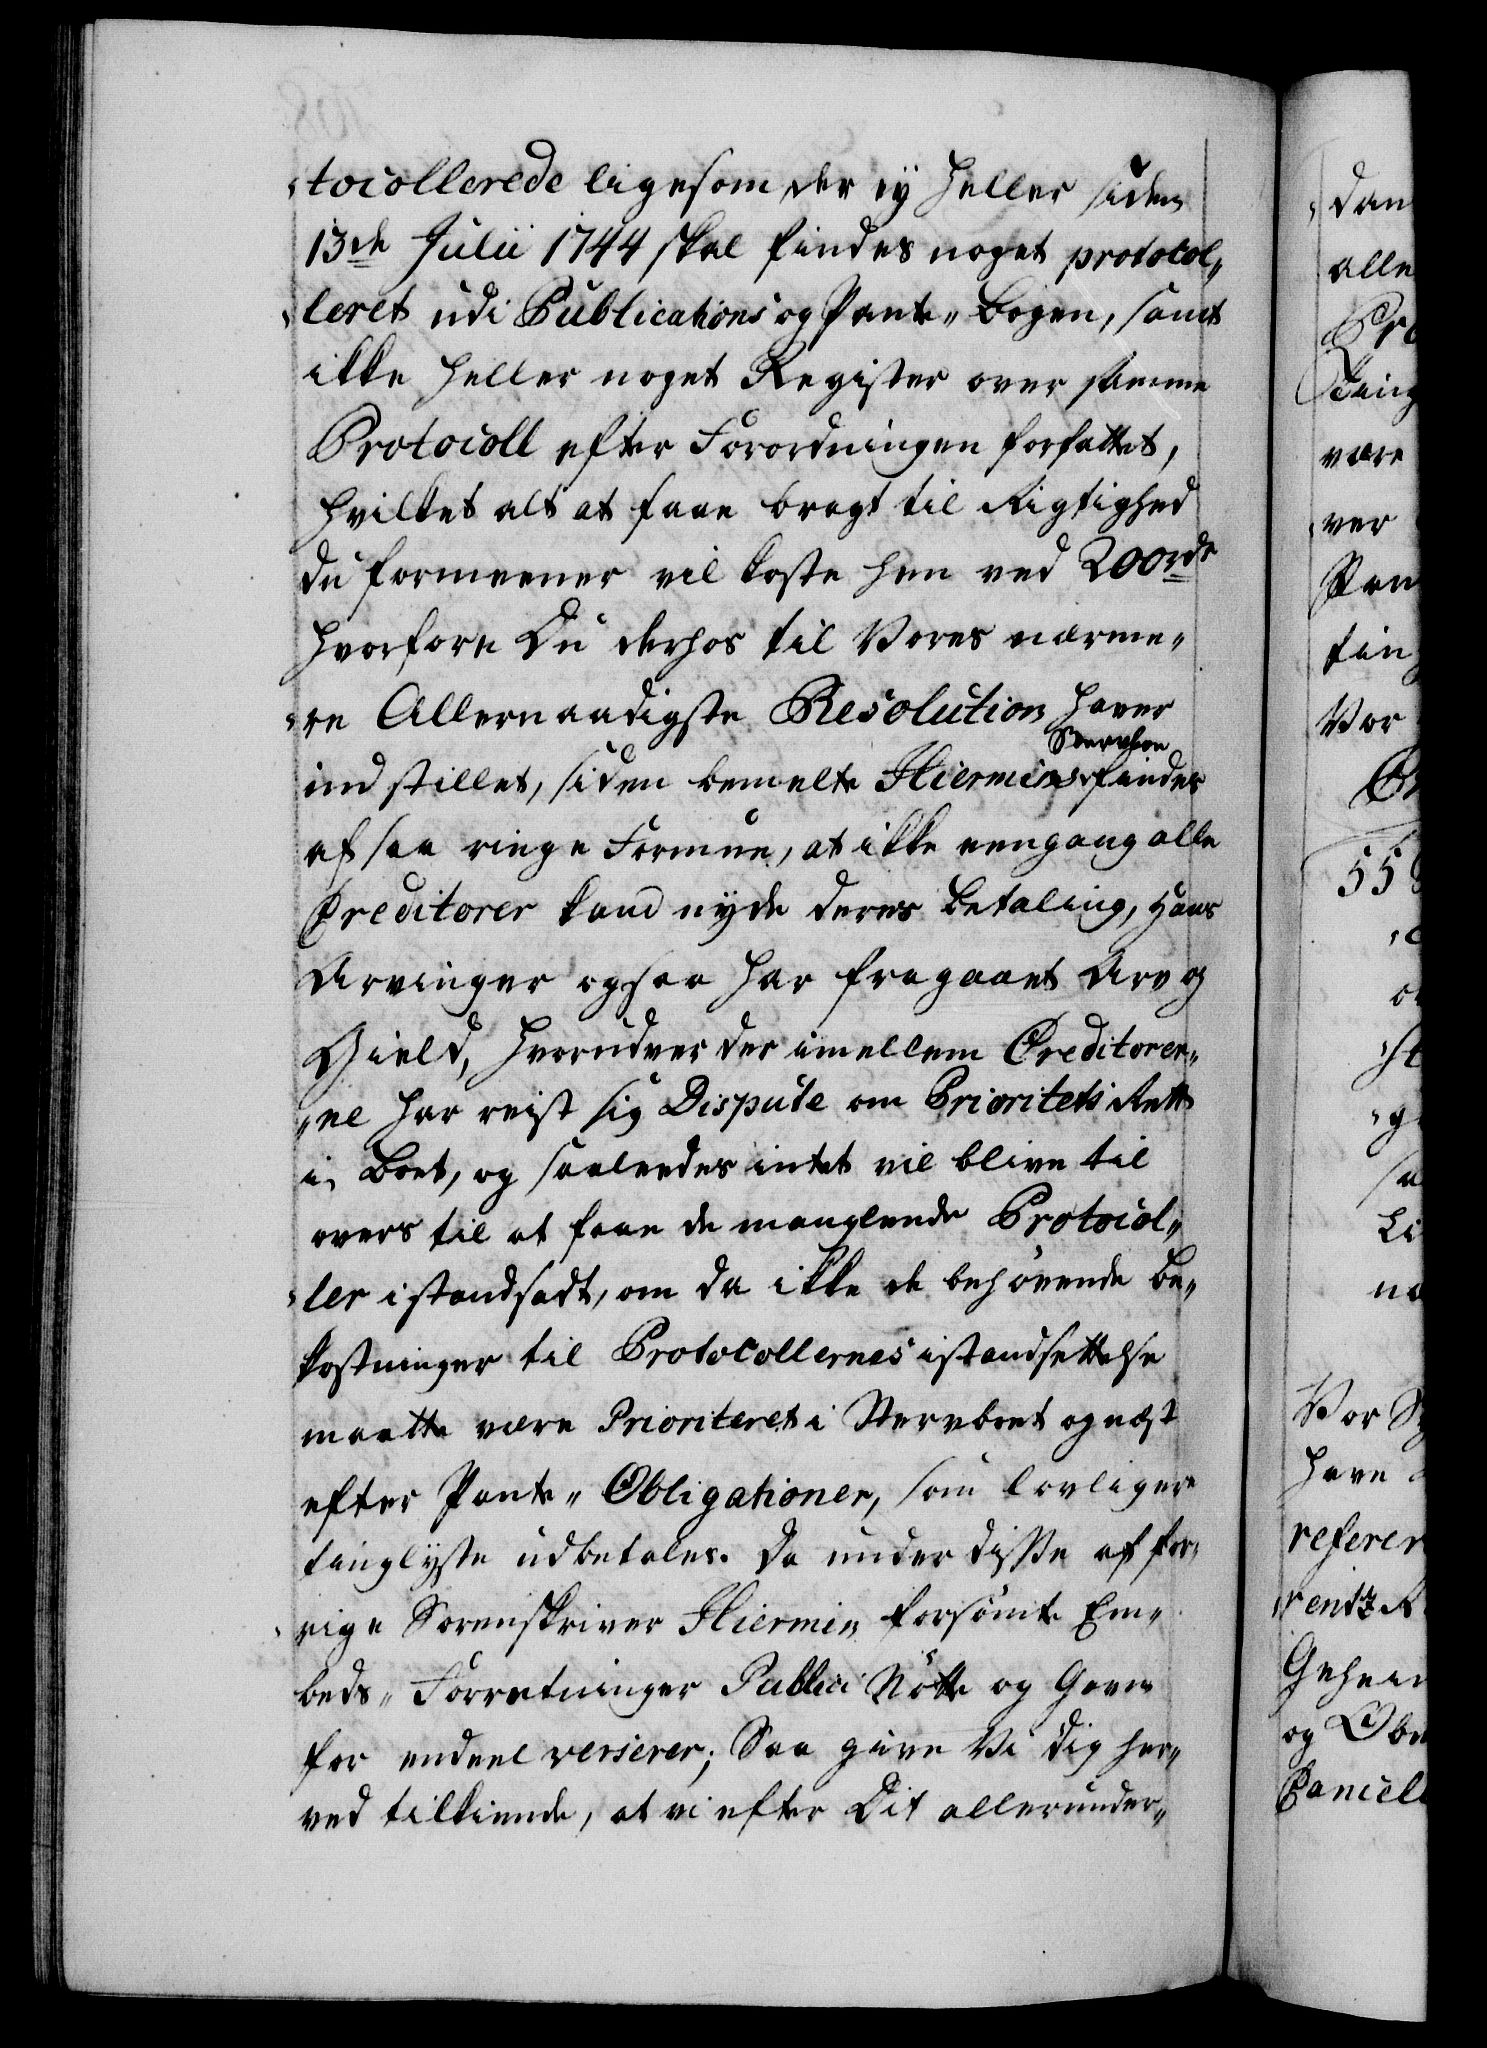 tocollerede ligesom der ey heller siden
13de Julii 1744 skal findes noget protocol„
„leret udi Publications og Pante„Bogen, samt
ikke heller noget Register over samme
Protocoll efter Forordningen forfattet,
hvilket alt at faae bragt til Rigtighed
du formeener vil koste hen ved 200 rd
hvorfore Du derhos til Vores nærme„
„re Allernaadigste Resolution haver
ind stillet, siden bemelte Hiermins Stervboe findes
af saa ringe Formue, at ikke eengang alle
Creditorer kand nyde deres Betaling, Hans
Arvinger ogsaa har fragaaet Arv og
Gield, hvorudover der imellem Creditorer„
„ne har reist sig Dispute om Prioritets Rett
i Boet, og saaledes intet vil blive til
overs til at faae de manglende Protocol„
„ler istandsadt, om da ikke de behövende Be„
kostninger til Protocollernes istandsettelse
maatte være Prioriteret i Stervboet og næst
efter Pante„Obligationer, som lovligere
tinglyste udbetales. Da under disse af for„
„rige Sorenskriver Hiermin forsömte Em„
beds„Forretninger Publici Nötte og Gavn
for endeel verserer; Saa give Vi dig her„
ved tilkiende, at vi efter Dit allerunder„
dan
alle
Pro
ting
være
ver
Pan
ting
Vor
55
Li
Vor
have
referer
rentz
Geheim
og Obe
Cancell